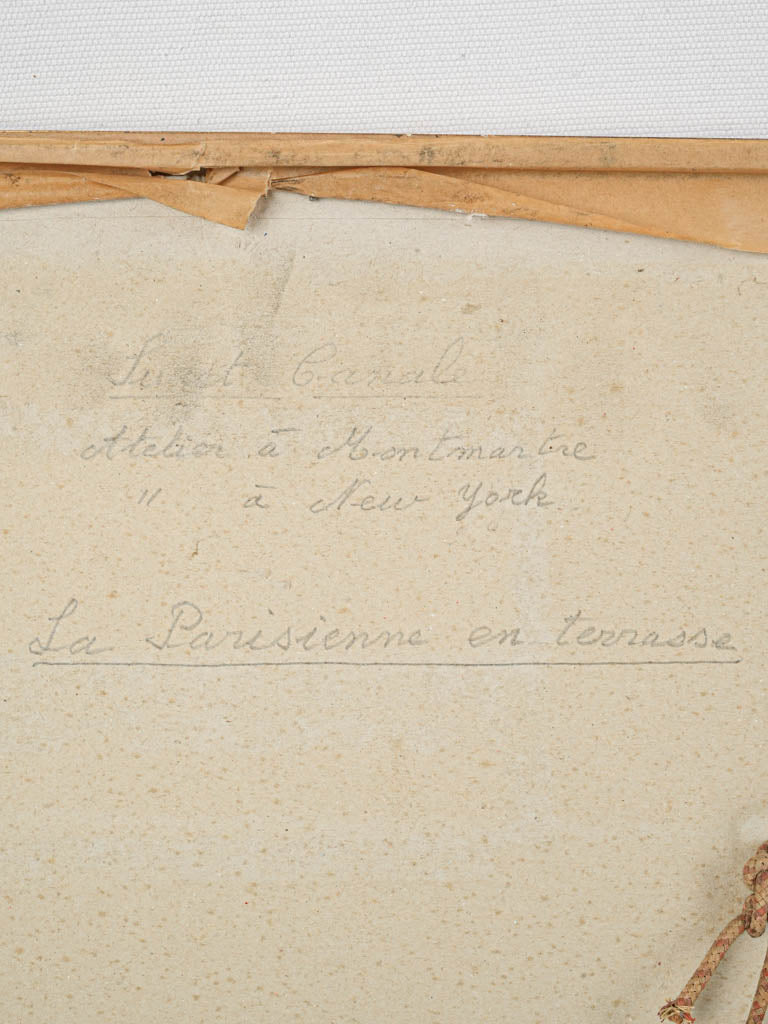 Canale
Atelier à Montmartre
" à New York
La Parisienne en terrasse